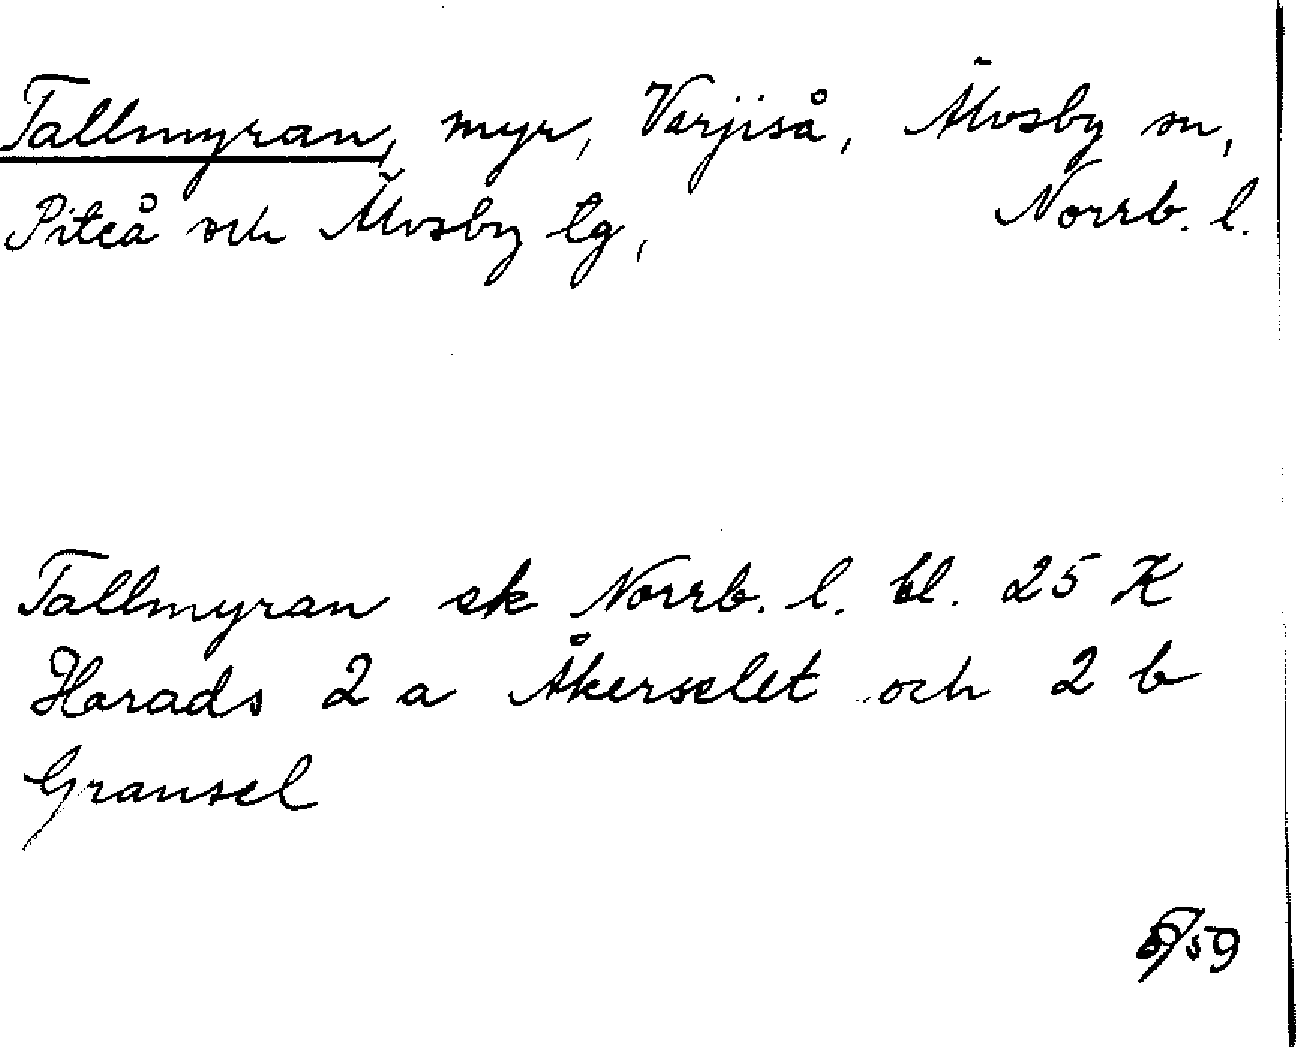 Tallmyran, myr, Varjiså, Älvsby sn,
Piteå och Älvsby tg, Norrb. l.
Tallmyran ek Norrb. l. bl. 25 K
Harads 2 a Åkerselet och 2 b
Gransel
/59